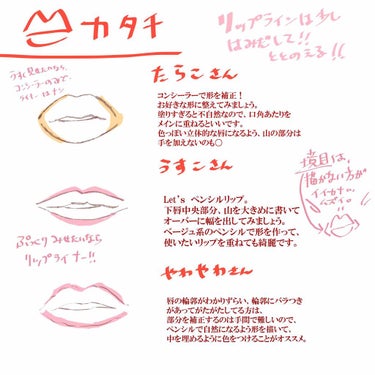 カタチ
リップラインは少し
はみだして!!
ととのえる!!
うすく見せたいなら、
コンシーラーのみで、
ライナーはナシ
たらこさん
コンシーラーで形を補正！
お好きな形に整えてみましょう。
塗りすぎると不自然なので、口角あたりを
メインに重ねるといいです。
色っぽい立体的な唇になるよう、山の部分は
手を加えないのも○
うすこさん
Let's ペンシルリップ。
下唇中央部分、山を大きめに書いて
オーバーに幅を出してみましょう。
ベージュ系のペンシルで形を作って、
使いたいリップを重ねても綺麗です。
境目は、
描かない方が
ぷっくりみせたいなら
リップライナー!!
やわやわさん
唇の輪郭がわかりずらい、輪郭にバラつき
があってがたがたしてる方は、
部分を補正するのは手間で難しいので、
ペンシルで自然になるよう形を描いて、
中を埋めるように色をつけることがオススメ。